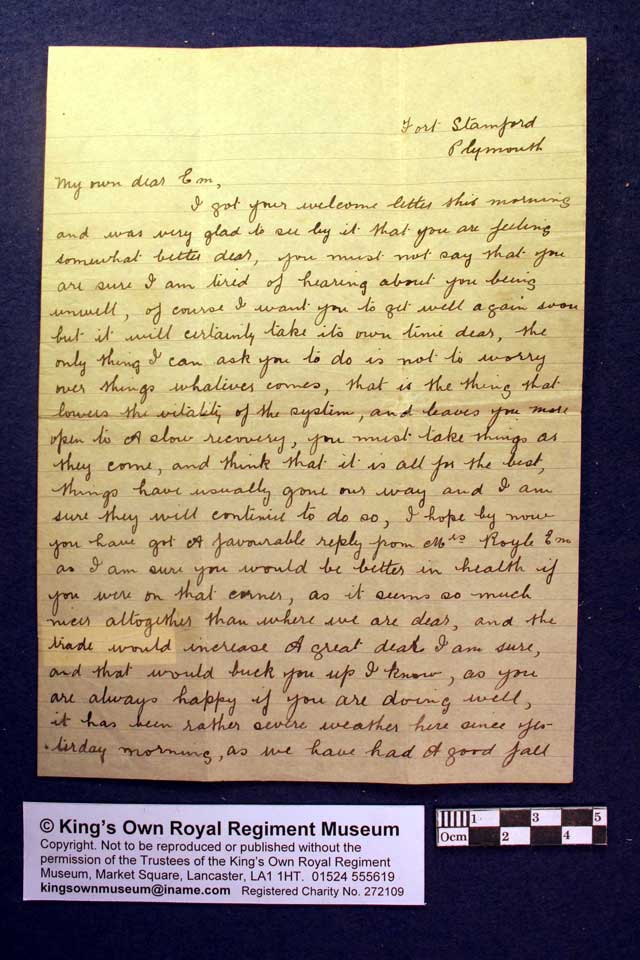 Fort Stamford
Plymouth
My own dear Em,
I got your welcome letter this morning
and was very glad to see by it that you are feeling
somewhat better dear, you must not say that you
are sure I am tired of hearing about you being
unwell, of course I want you to get well again soon
but it will certainly take its own time dear, the
only thing I can ask you to do is not to worry
over things whatever comes, that is the thing that
lowers the vitality of the system, and leaves you more
open to A slow recovery, you must take things as
they come, and think that it is all for the best,
things have usually gone our way and I am
sure they will continue to do so, I hope by now
you have got A favourable reply from Mrs Royle Em
as I am sure you would be better in health if
you were on that corner, as it seems so much
nicer altogether than where we are dear, and the
trade would increase A great deal I am sure,
and that would buck you up I know, as you
are always happy if you are doing well,
it has been rather severe weather here since yes-
terday morning, as we have had A good fall
© King's Own Royal Regiment Museum
Copyright. Not to be reproduced or published without the
permission of the Trustees of the King's Own Royal Regiment
Museum, Market Square, Lancaster, LA1 1HT. 01524 555619
kingsownmuseum@iname.com Registered Charity No. 272109
0cm 1 2 3 4 5